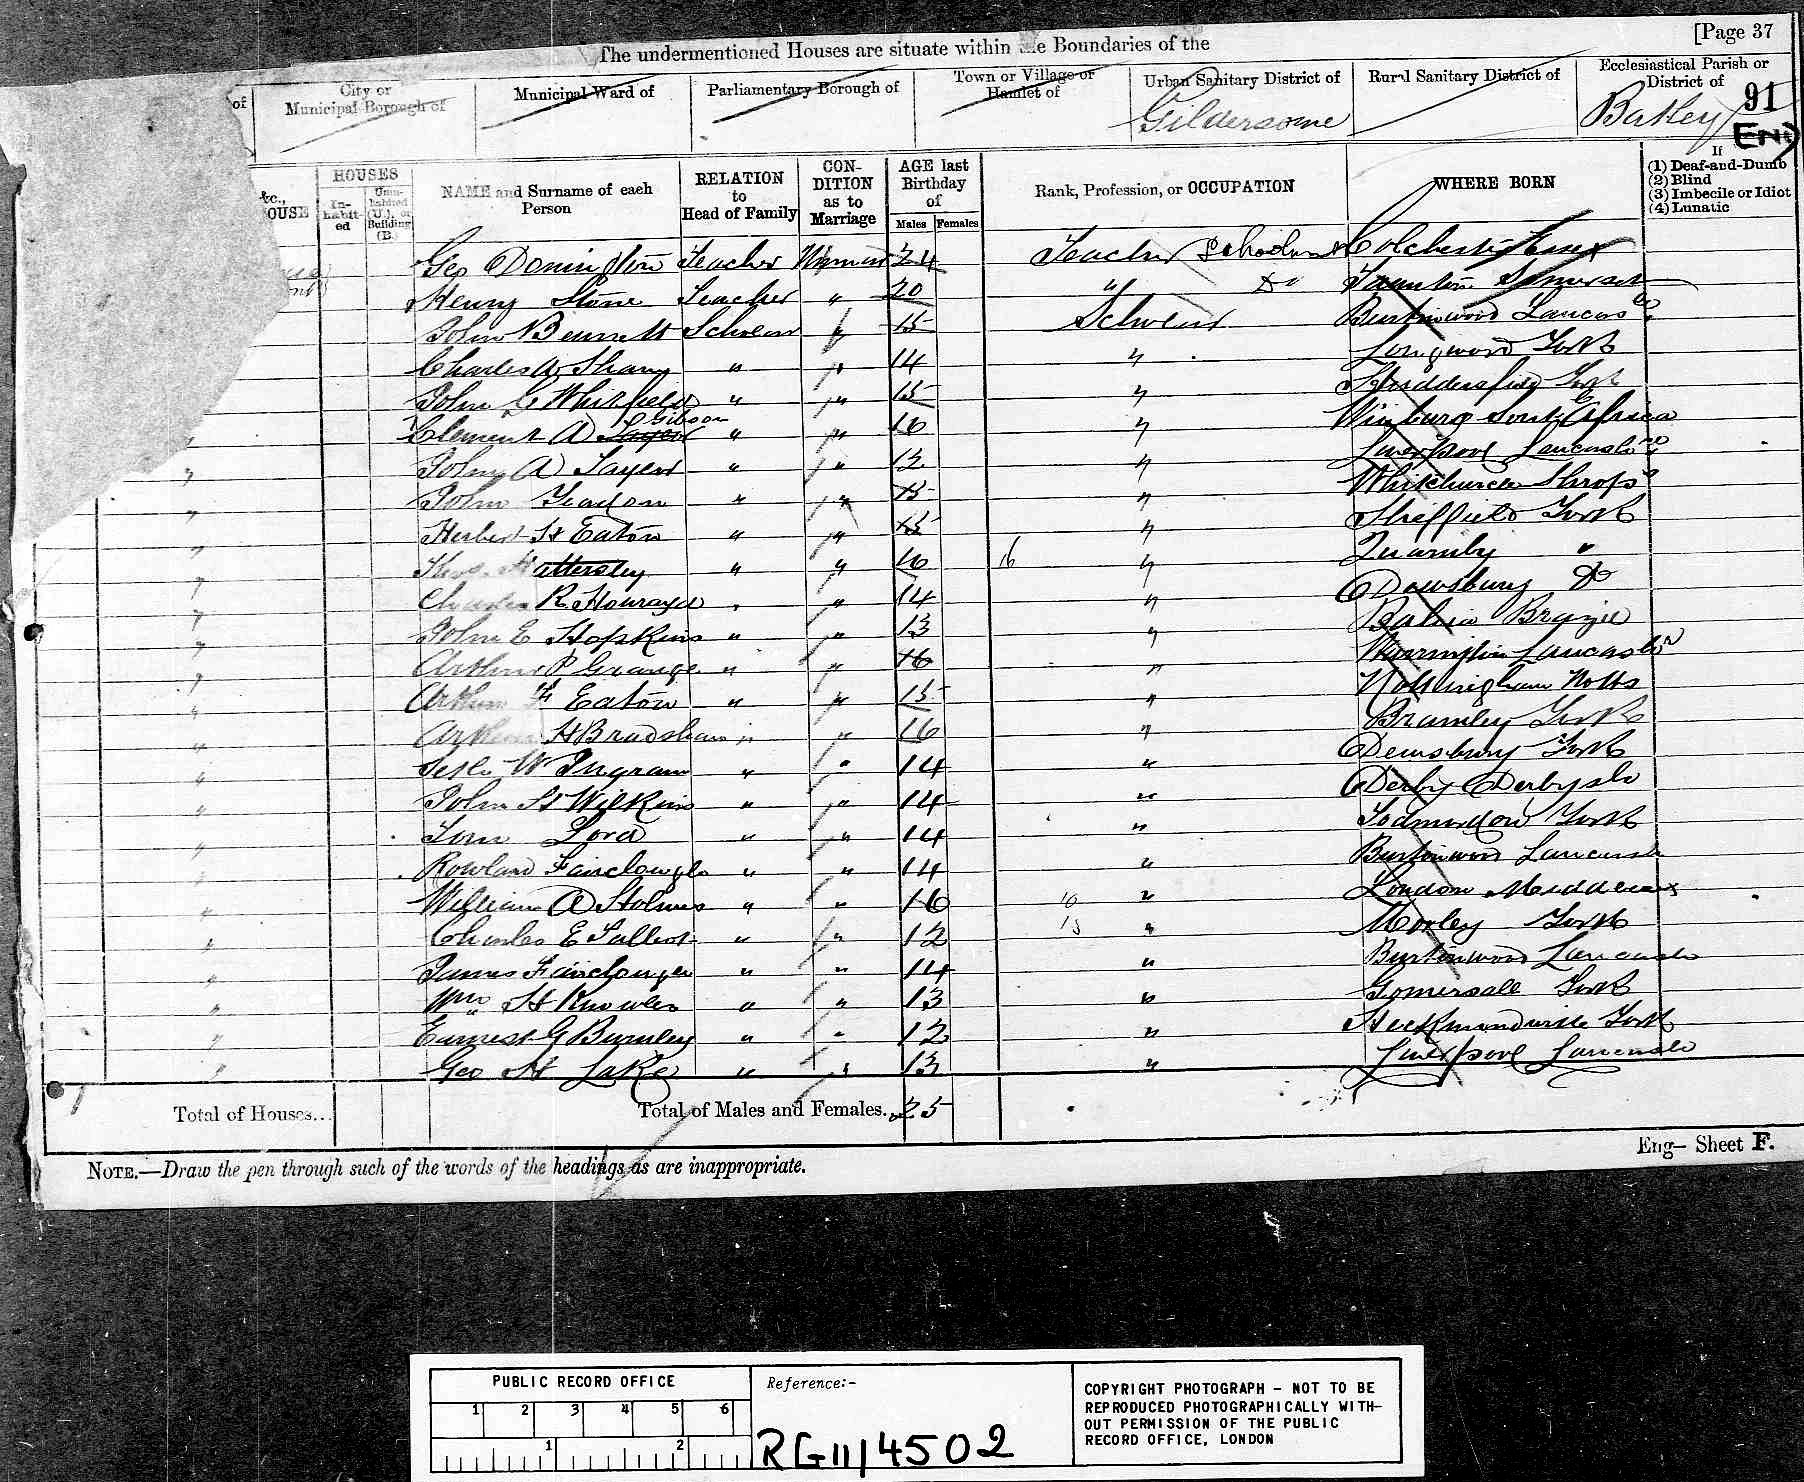 [Page 37
The undermentioned Houses are situate within the Boundaries of the
of City or Municipal Borough of Municipal Ward of Parliamentary Borough of Town or Village or Hamlet of Urban Sanitary District of Rural Sanitary District of Ecclesiastical Parish or District of
Gildersome Batley 91
END
&c., OUSE HOUSES In-habit-ed Unin-habited (U.), or Building (B.) NAME and Surname of each Person RELATION to Head of Family CON-DITION as to Marriage AGE last Birthday of Males Females Rank, Profession, or OCCUPATION WHERE BORN If (1) Deaf-and-Dumb (2) Blind (3) Imbecile or Idiot (4) Lunatic
Geo Donington Teacher Unmar 24 Teacher School Colchester Essex
Henry Stone Teacher " 20 " Do Taunton Somerset
John Bennett Scholar " 15 Scholar Burtonwood Lancas
Charles A Sharp " " 14 " Longwood York
John G Whitfield " " 15 " Huddersfield York
Clement A Gibson " " 16 " Winburg South Africa
John A Sayers " " 12 " Liverpool Lancash
John Yeadon " " 15 " Whitchurch Shrops
Herbert H Eaton " " 15 " Sheffield York
Thos. Hattersley " " 16 16 " Quarmby "
Charles R Howroyd " " 14 " Dewsbury Do
John E Hopkins " " 13 " Bahia Brazil
Arthur P Grange " " 16 " Warrington Lancash
Arthur H Eaton " " 15 " Nottingham Notts
Arthur H Bradshaw " " 16 " Bramley York
W Ingram " " 14 " Dewsbury York
John H Wilkins " " 14 " Derby Derbysh
Tom Lord " " 14 " Todmordon York
Rowland Fairclough " " 14 " Burtonwood Lancash
William A Holmes " " 16 " London Middlesex
Charles E " " 12 " Morley York
James Fairclough " " 14 " Burtonwood Lancash
Wm H Knowles " " 13 " Gomersall York
Ernest G Burnley " " 12 " Heckmondwike York
Geo H Lake " " 13 " Liverpool Lancash
Total of Houses... Total of Males and Females.. 25
Eng— Sheet F.
NOTE.—Draw the pen through such of the words of the headings as are inappropriate.
PUBLIC RECORD OFFICE
1 2 3 4 5 6
1 2
Reference:-
RG11/4502
COPYRIGHT PHOTOGRAPH - NOT TO BE
REPRODUCED PHOTOGRAPHICALLY WITH-
OUT PERMISSION OF THE PUBLIC
RECORD OFFICE, LONDON